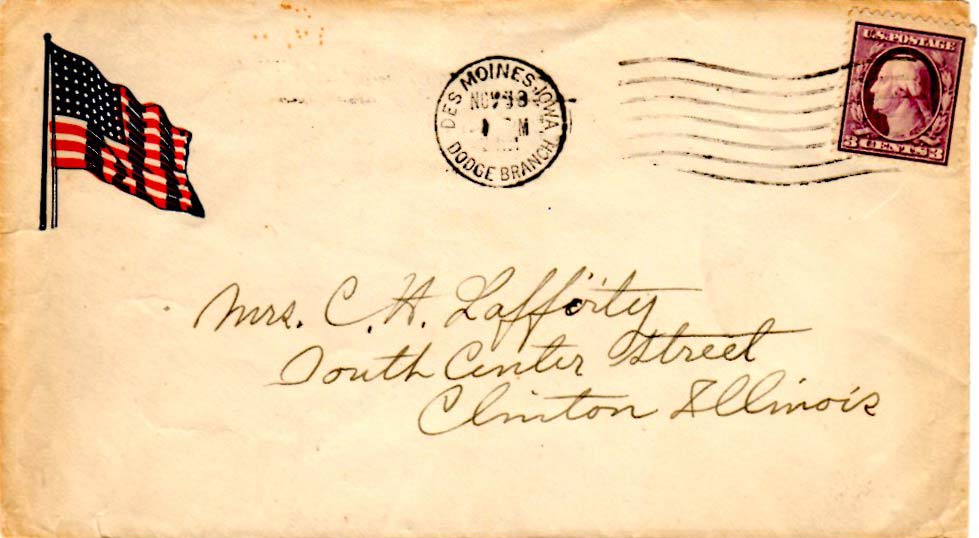 DES MOINES, IOWA.
NOV 18
M
DODGE BRANCH
U.S. POSTAGE
3 CENTS 3
Mrs. C. H. Lafferty
South Center Street
Clinton Illinois